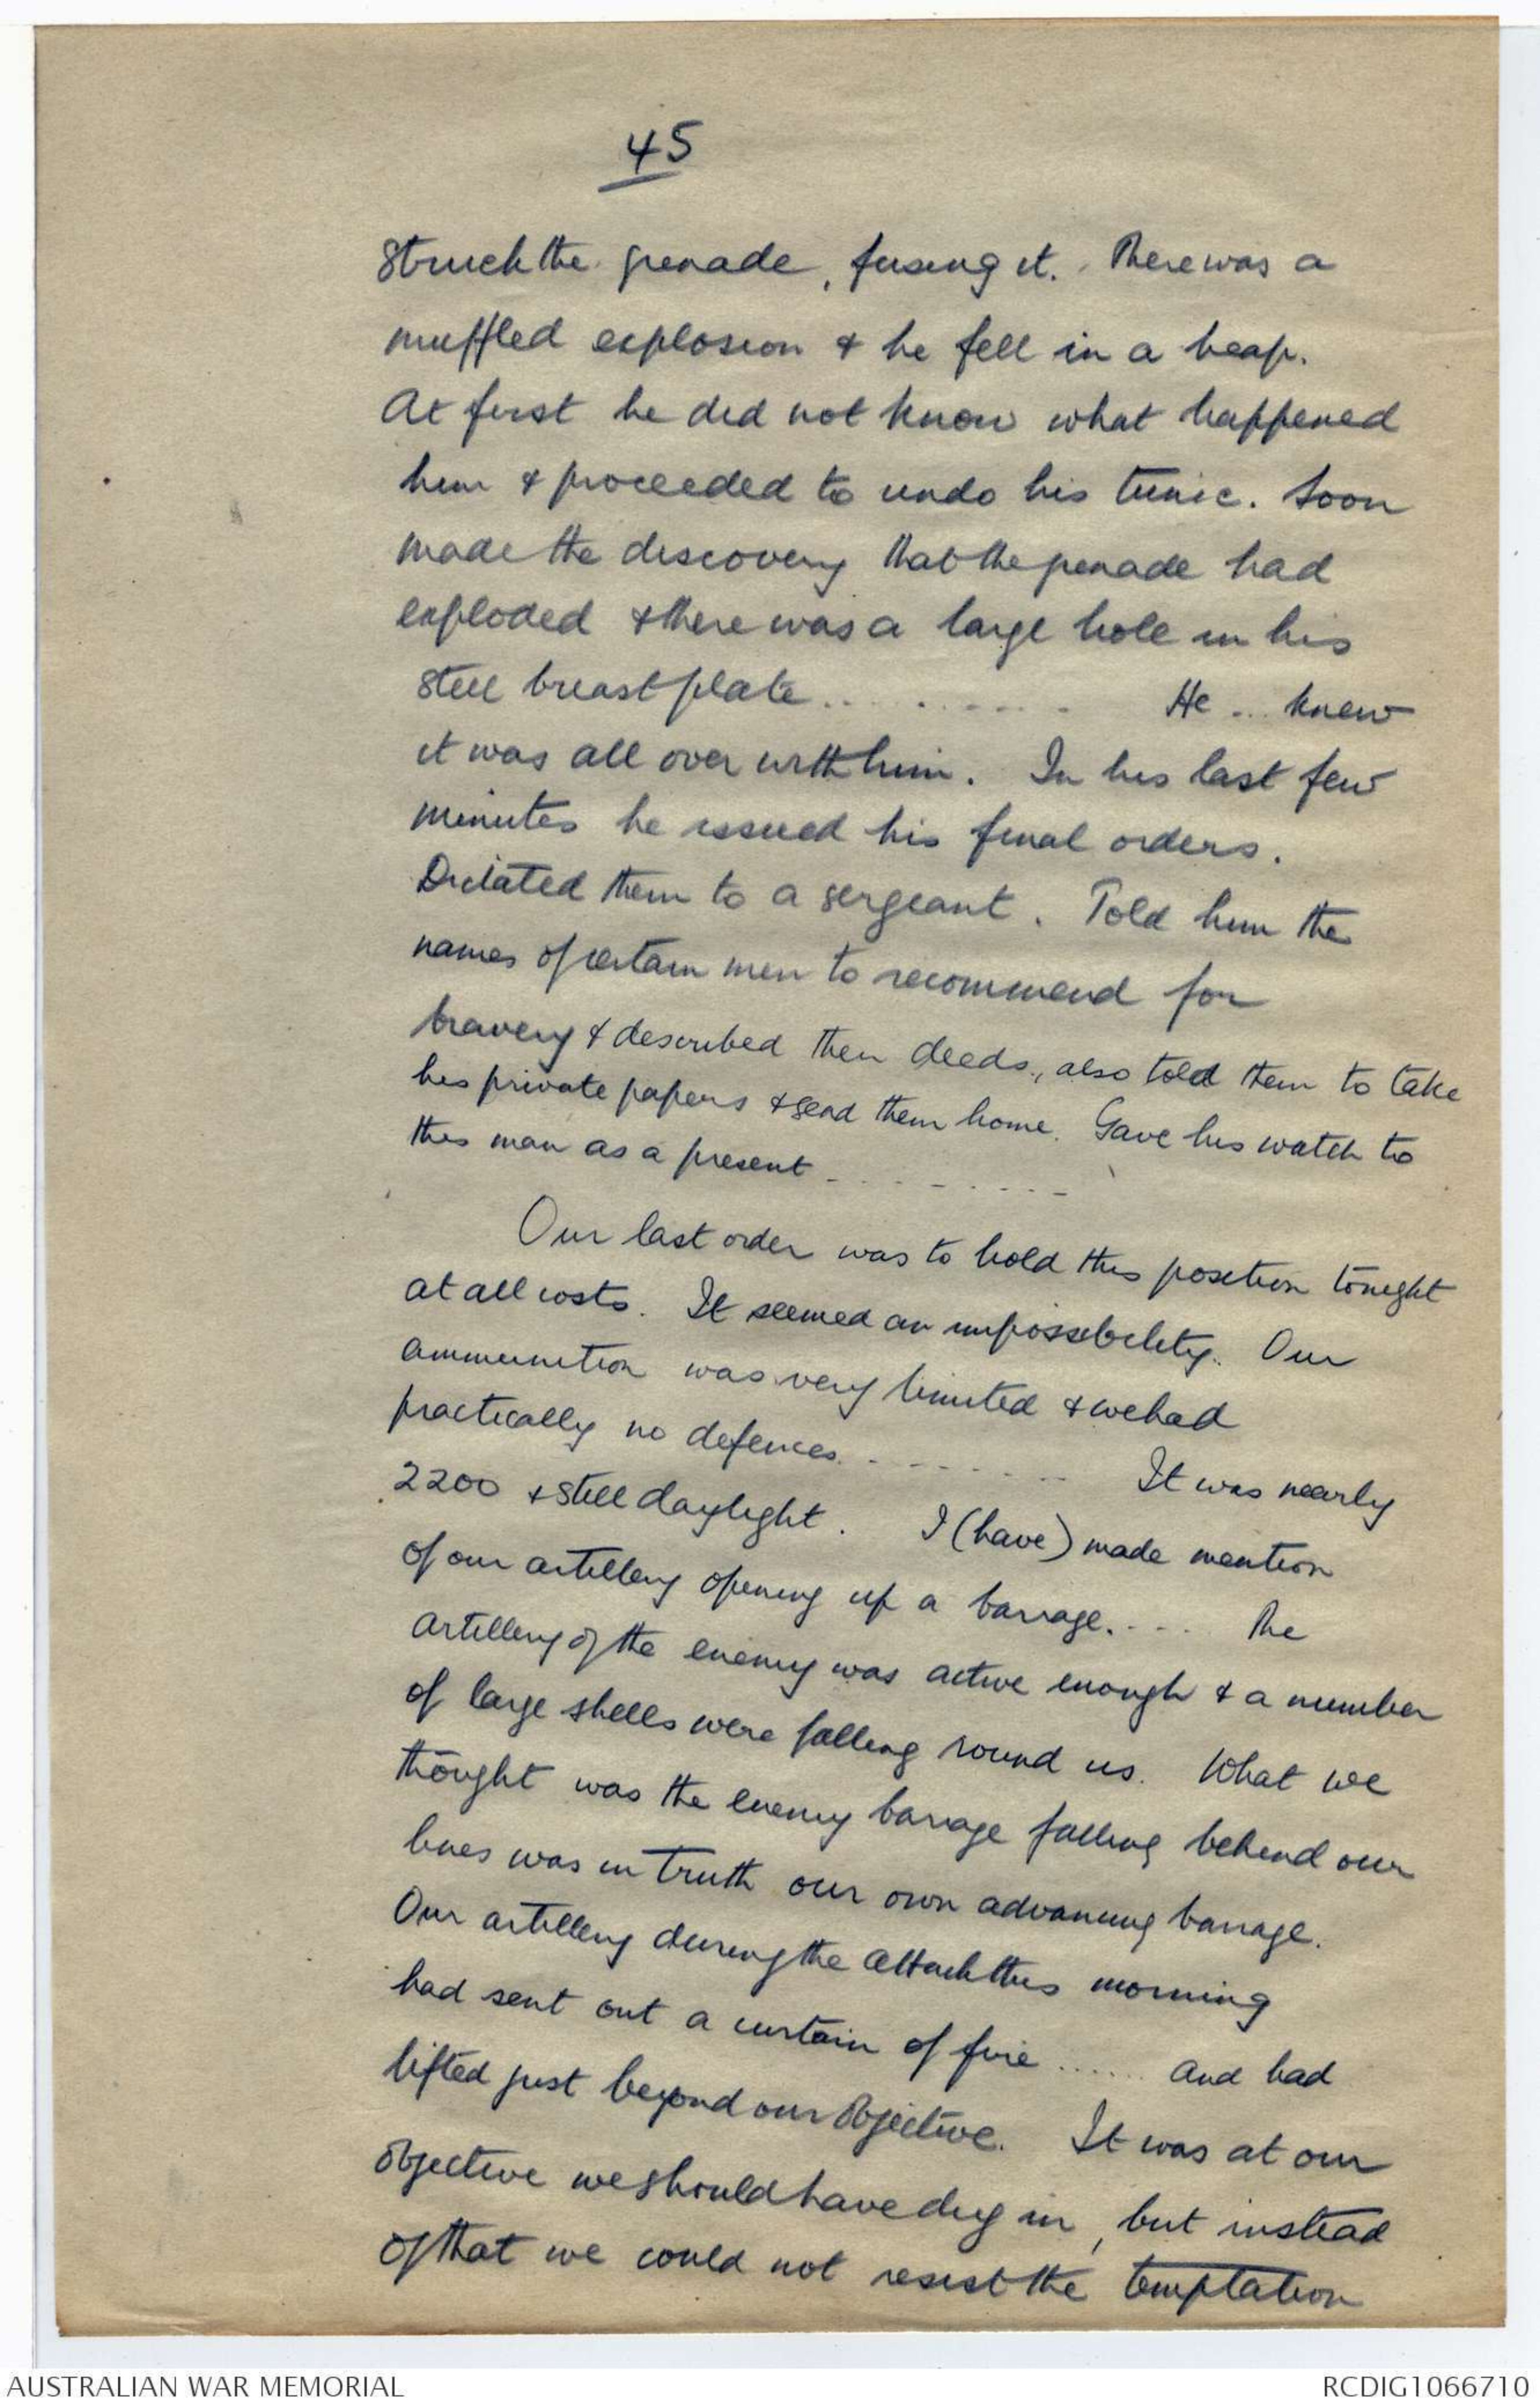 45
struck the grenade, fusing it. There was a
muffled explosion & he fell in a heap.
At first he did not know what happened
him & proceeded to undo his tunic. Soon
made the discovery that the grenade had
exploded & there was a large hole in his
steel breast plate............ He... knew
it was all over with him. In his last few
minutes he issued his final orders.
Dictated them to a sergeant. Told him the
names of certain men to recommend for
bravery & described their deeds, also told them to take
his private papers & send them home. Gave his watch to
this man as a present..........
Our last order was to hold this position tonight
at all costs. It seemed an impossibility. Our
ammunition was very limited & we had
practically no defences.......... It was nearly
2200 & still daylight. I (have) made mention
of our artillery opening up a barrage..... The
artillery of the enemy was active enough & a number
of large shells were falling round us. What we
thought was the enemy barrage falling behind our
lines was in truth our own advancing barrage.
Our artillery during the attack this morning
had sent out a curtain of fire...... and had
lifted just beyond our objective. It was at our
objective we should have dug in, but instead
of that we could not resist the temptation
AUSTRALIAN WAR MEMORIAL
RCDIG1066710